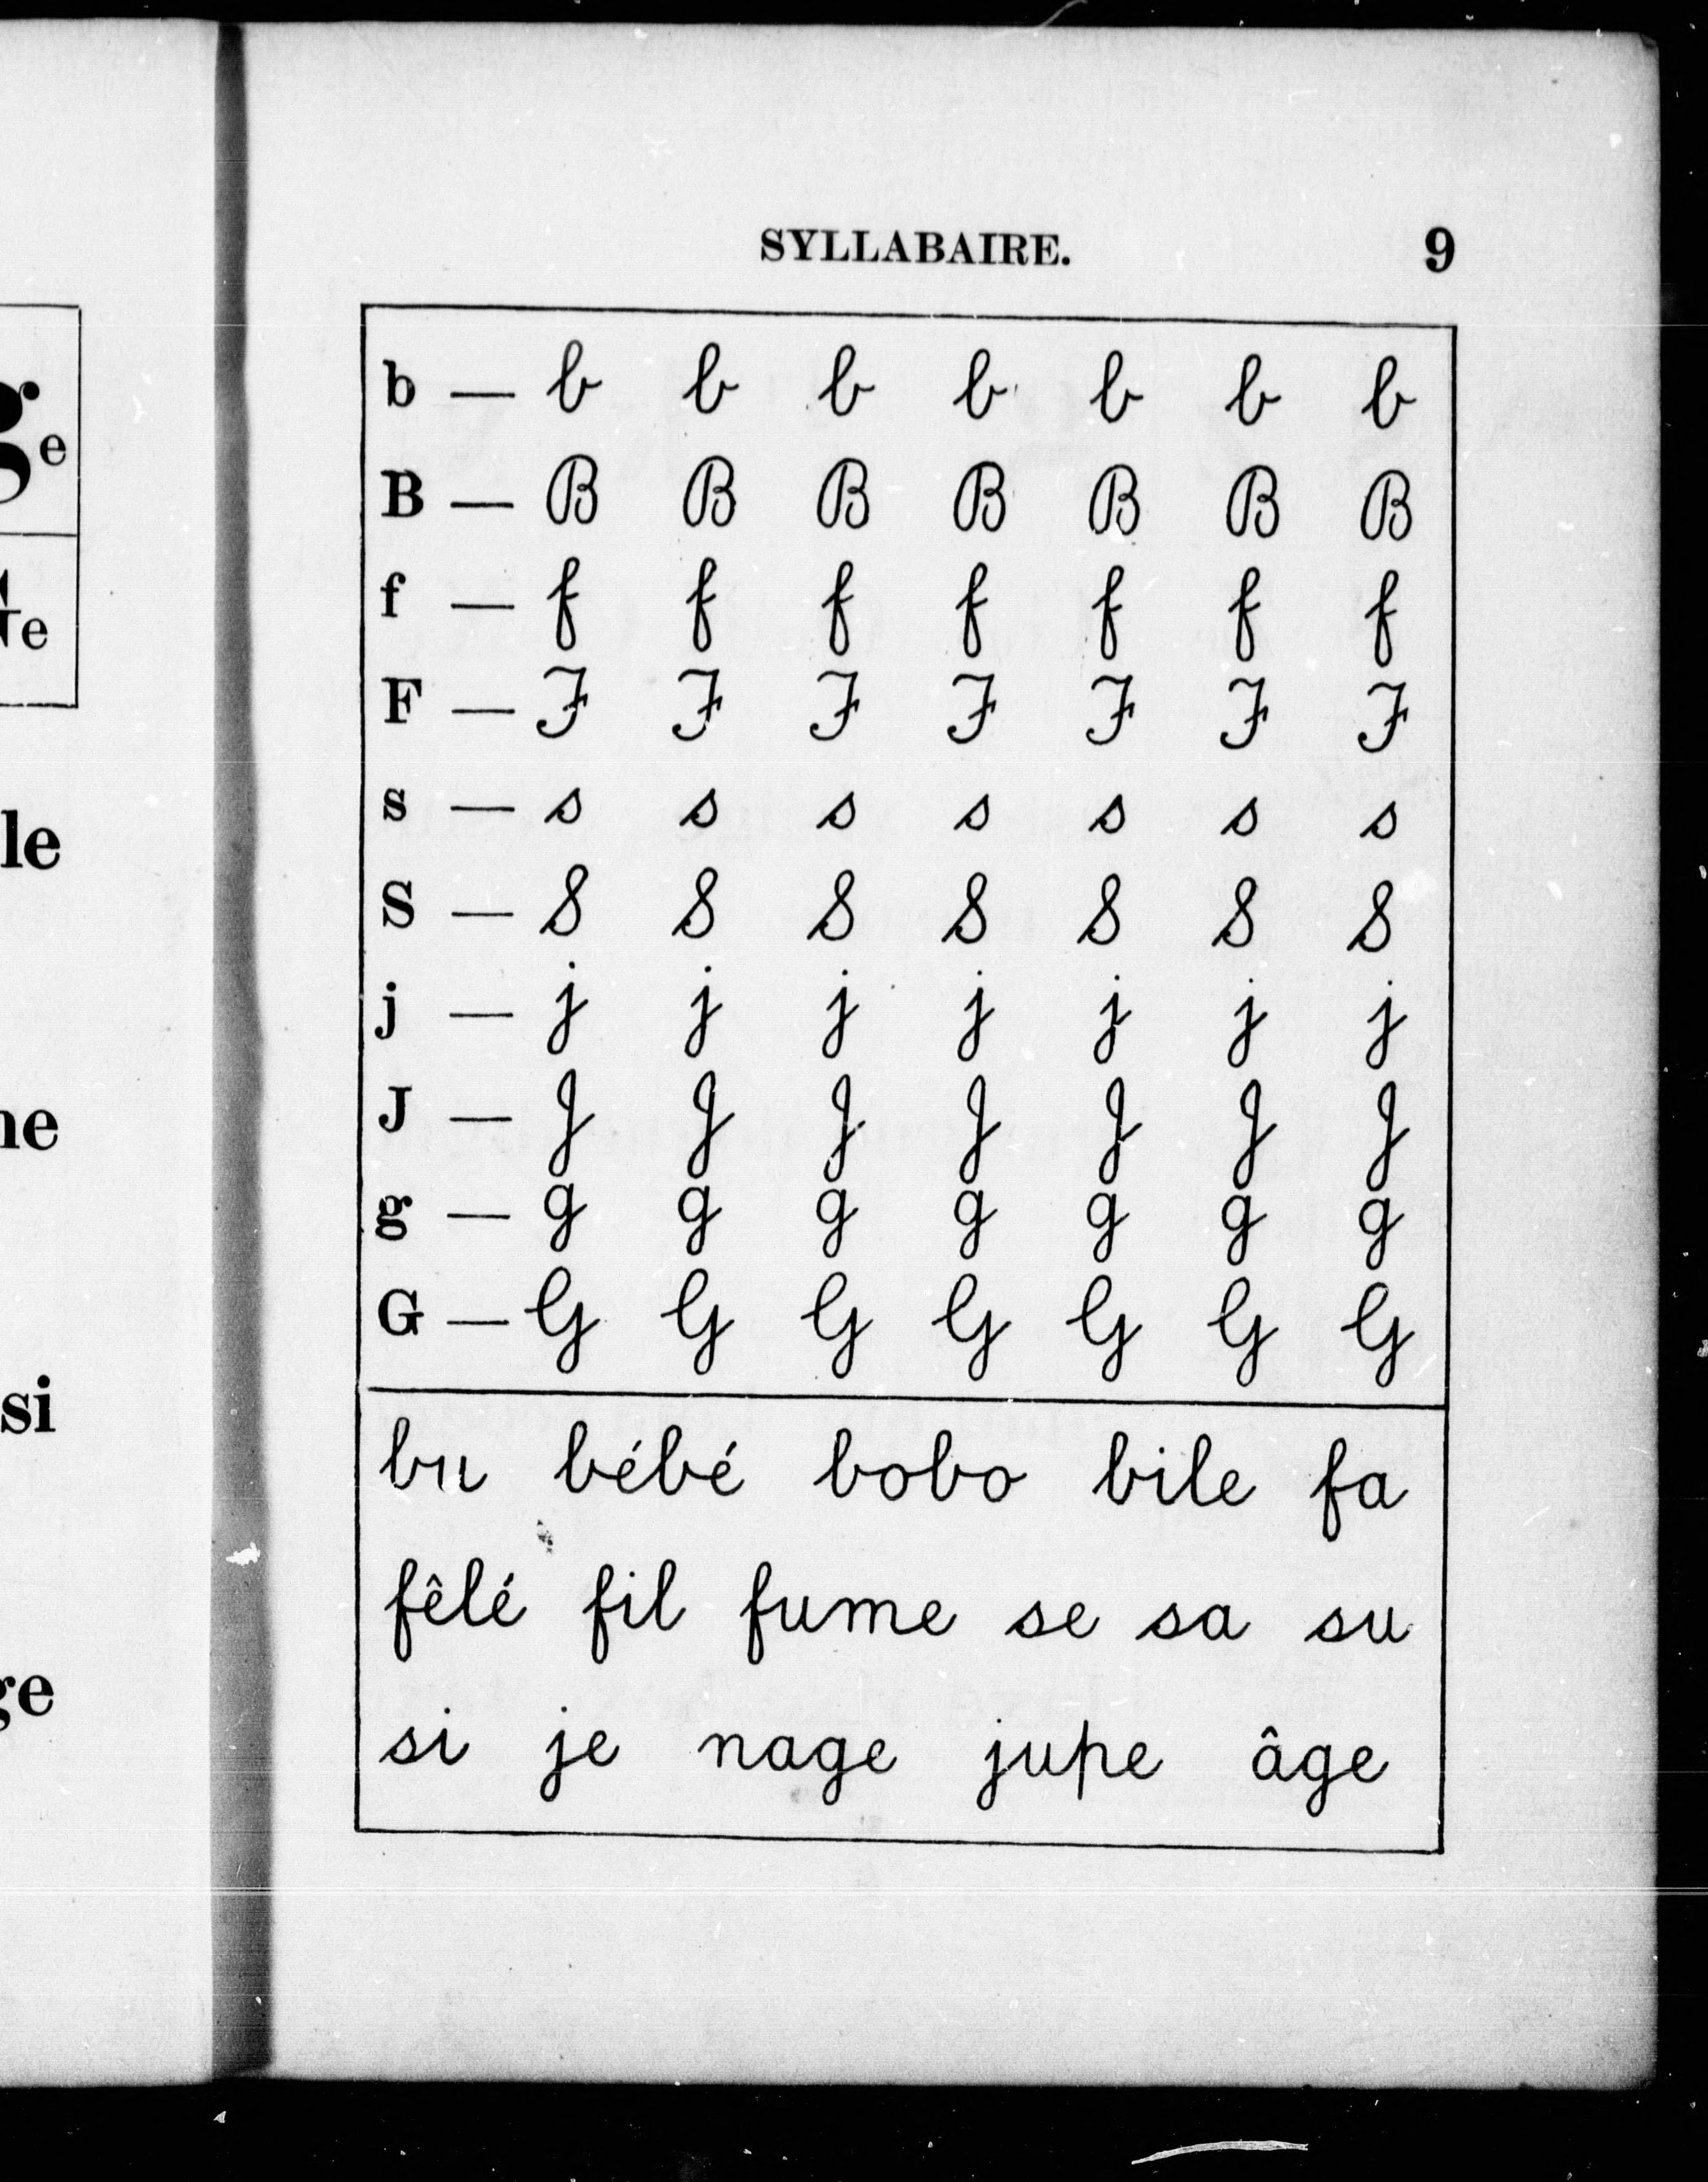 SYLLABAIRE. 9
b — b b b b b b b
B — B B B B B B B
f — f f f f f f f
F — F F F F F F F
s — s s s s s s s
S — S S S S S S S
j — j j j j j j j
J — J J J J J J J
g — g g g g g g g
G — G G G G G G G
bu bébé bobo bile fa
fêlé fil fume se sa su
si je nage jupe âge